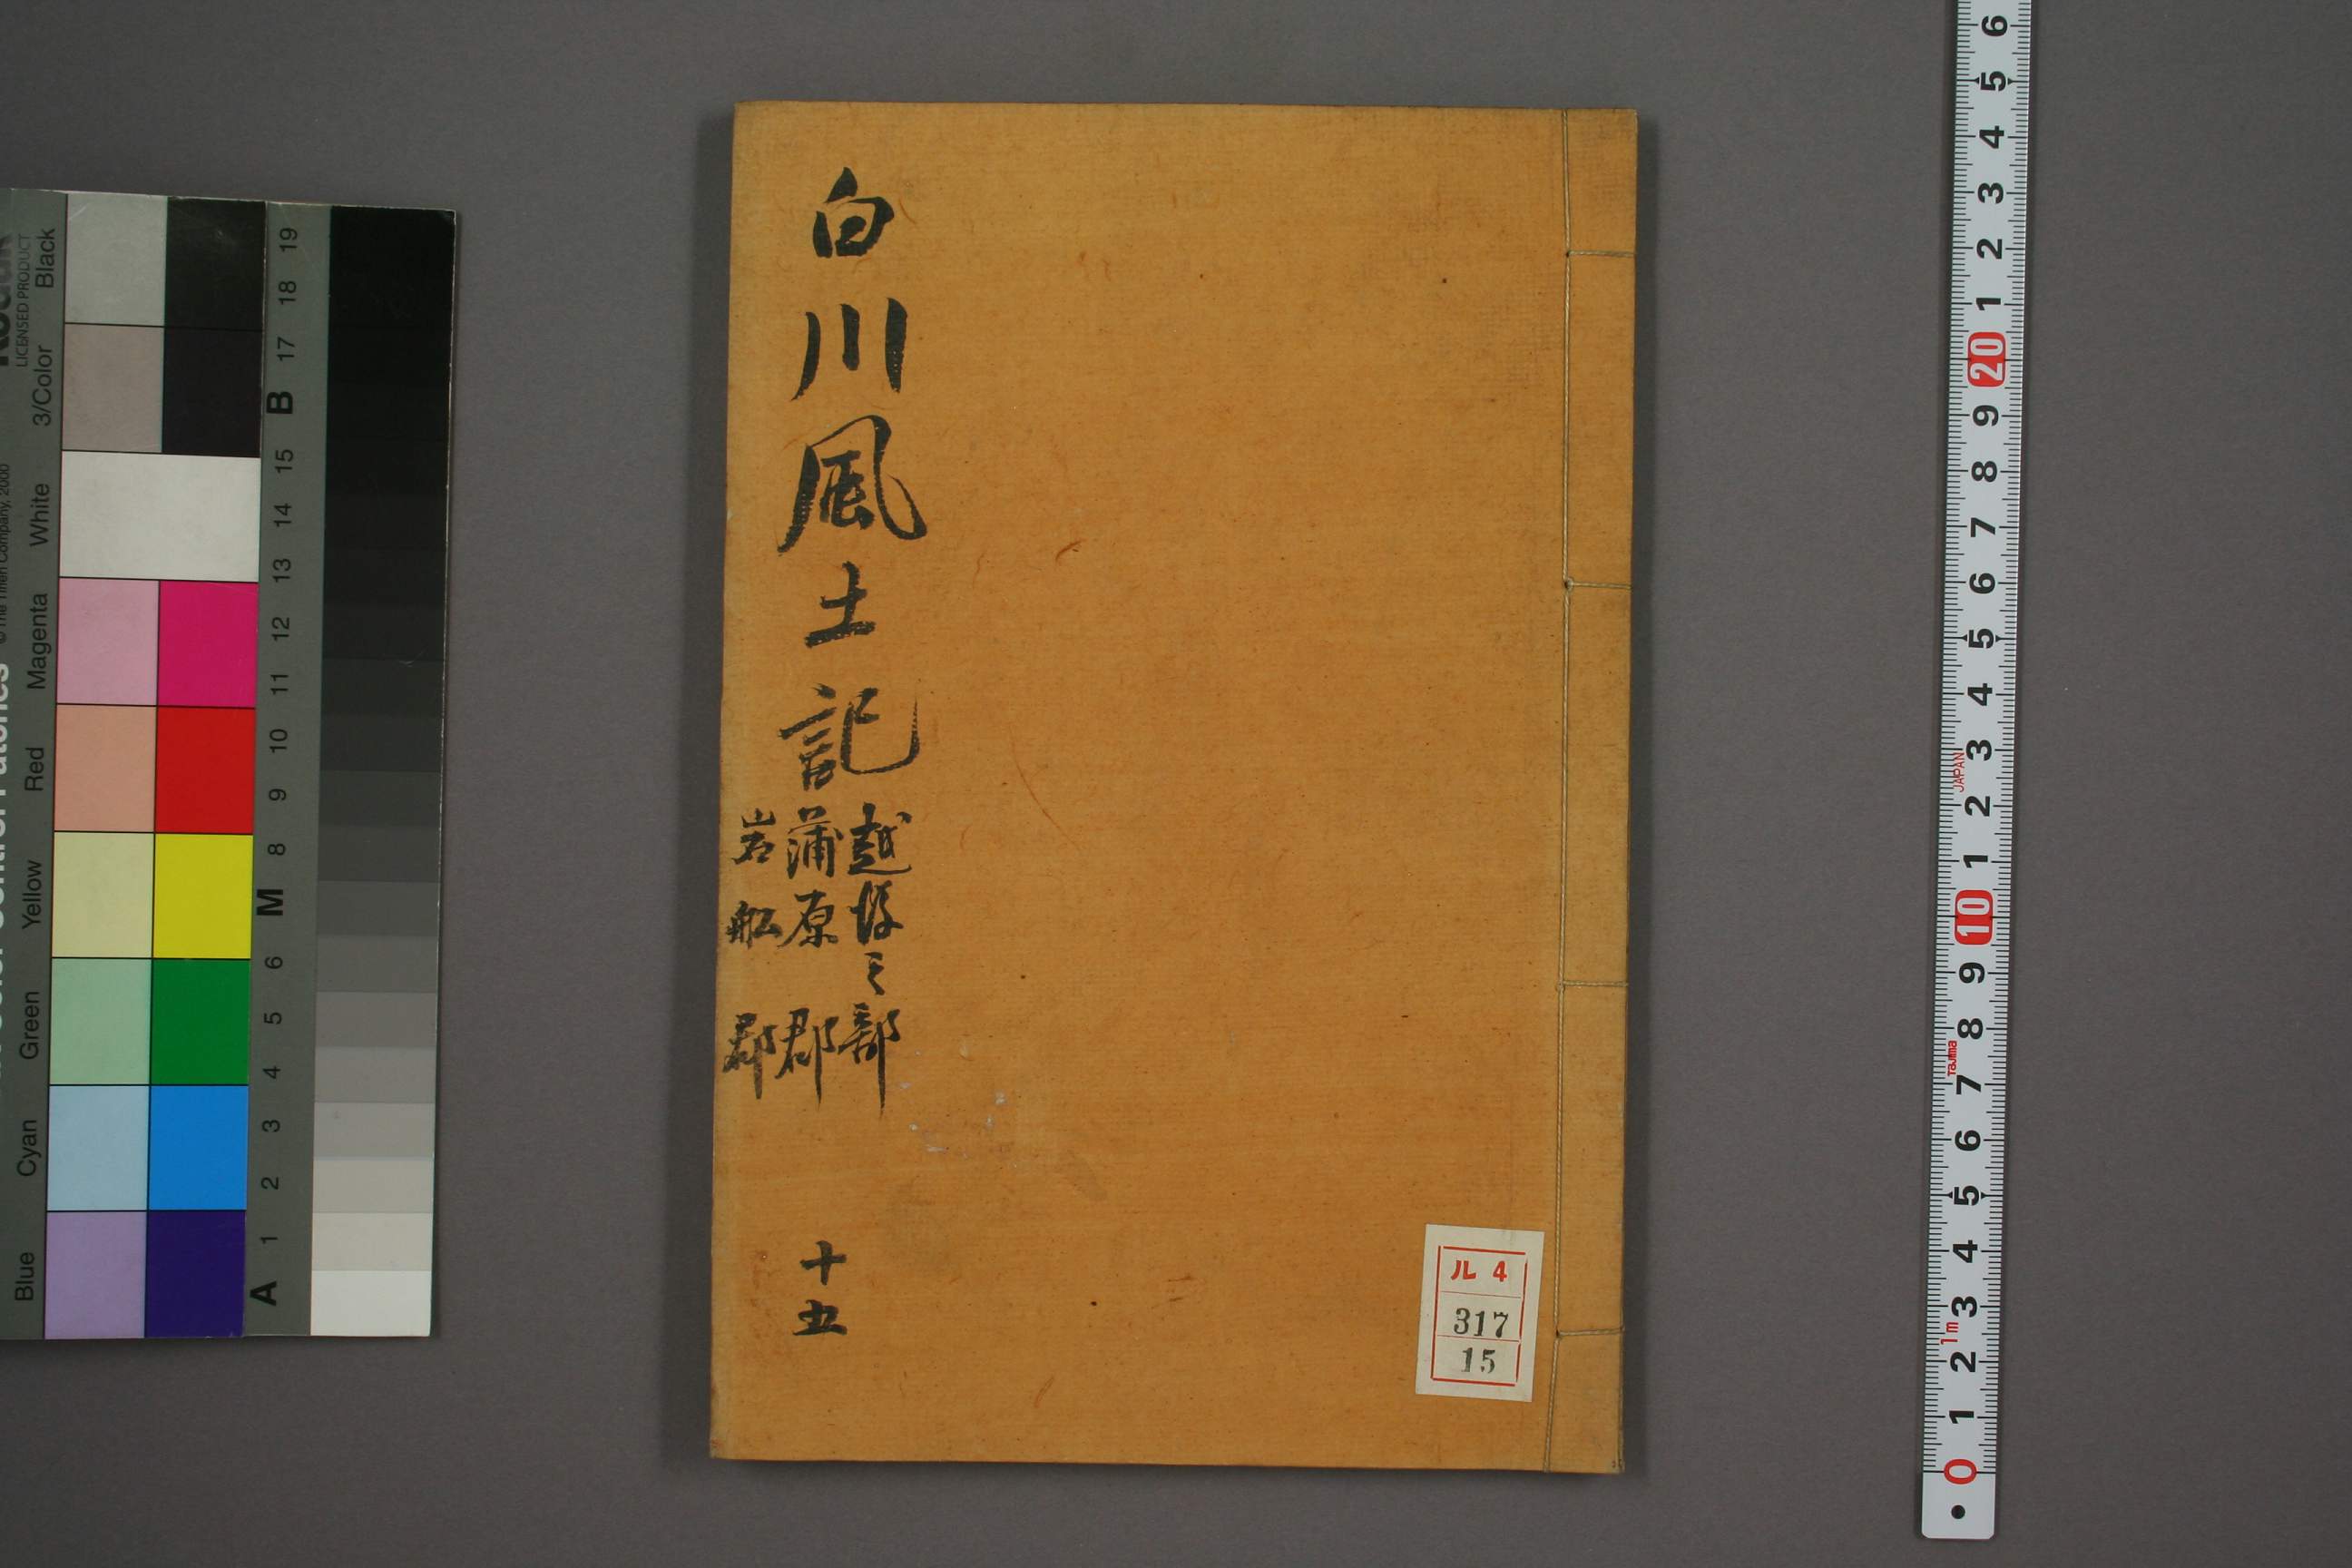 白川風土記
越後之部
蒲原郡
岩舩郡
十五
ル 4
317
15
LICENSED PRODUCT
Black
3/Color
White
Magenta
Red
Yellow
Green
Cyan
Blue
© The Tiffen Company, 2000
19
18
17
B
15
14
13
12
11
10
9
8
M
6
5
4
3
2
1
A
6
5
4
3
2
1
20
9
8
7
6
5
4
3
2
1
10
9
8
7
6
5
4
3
2
1
0
JAPAN
Tajima
1m